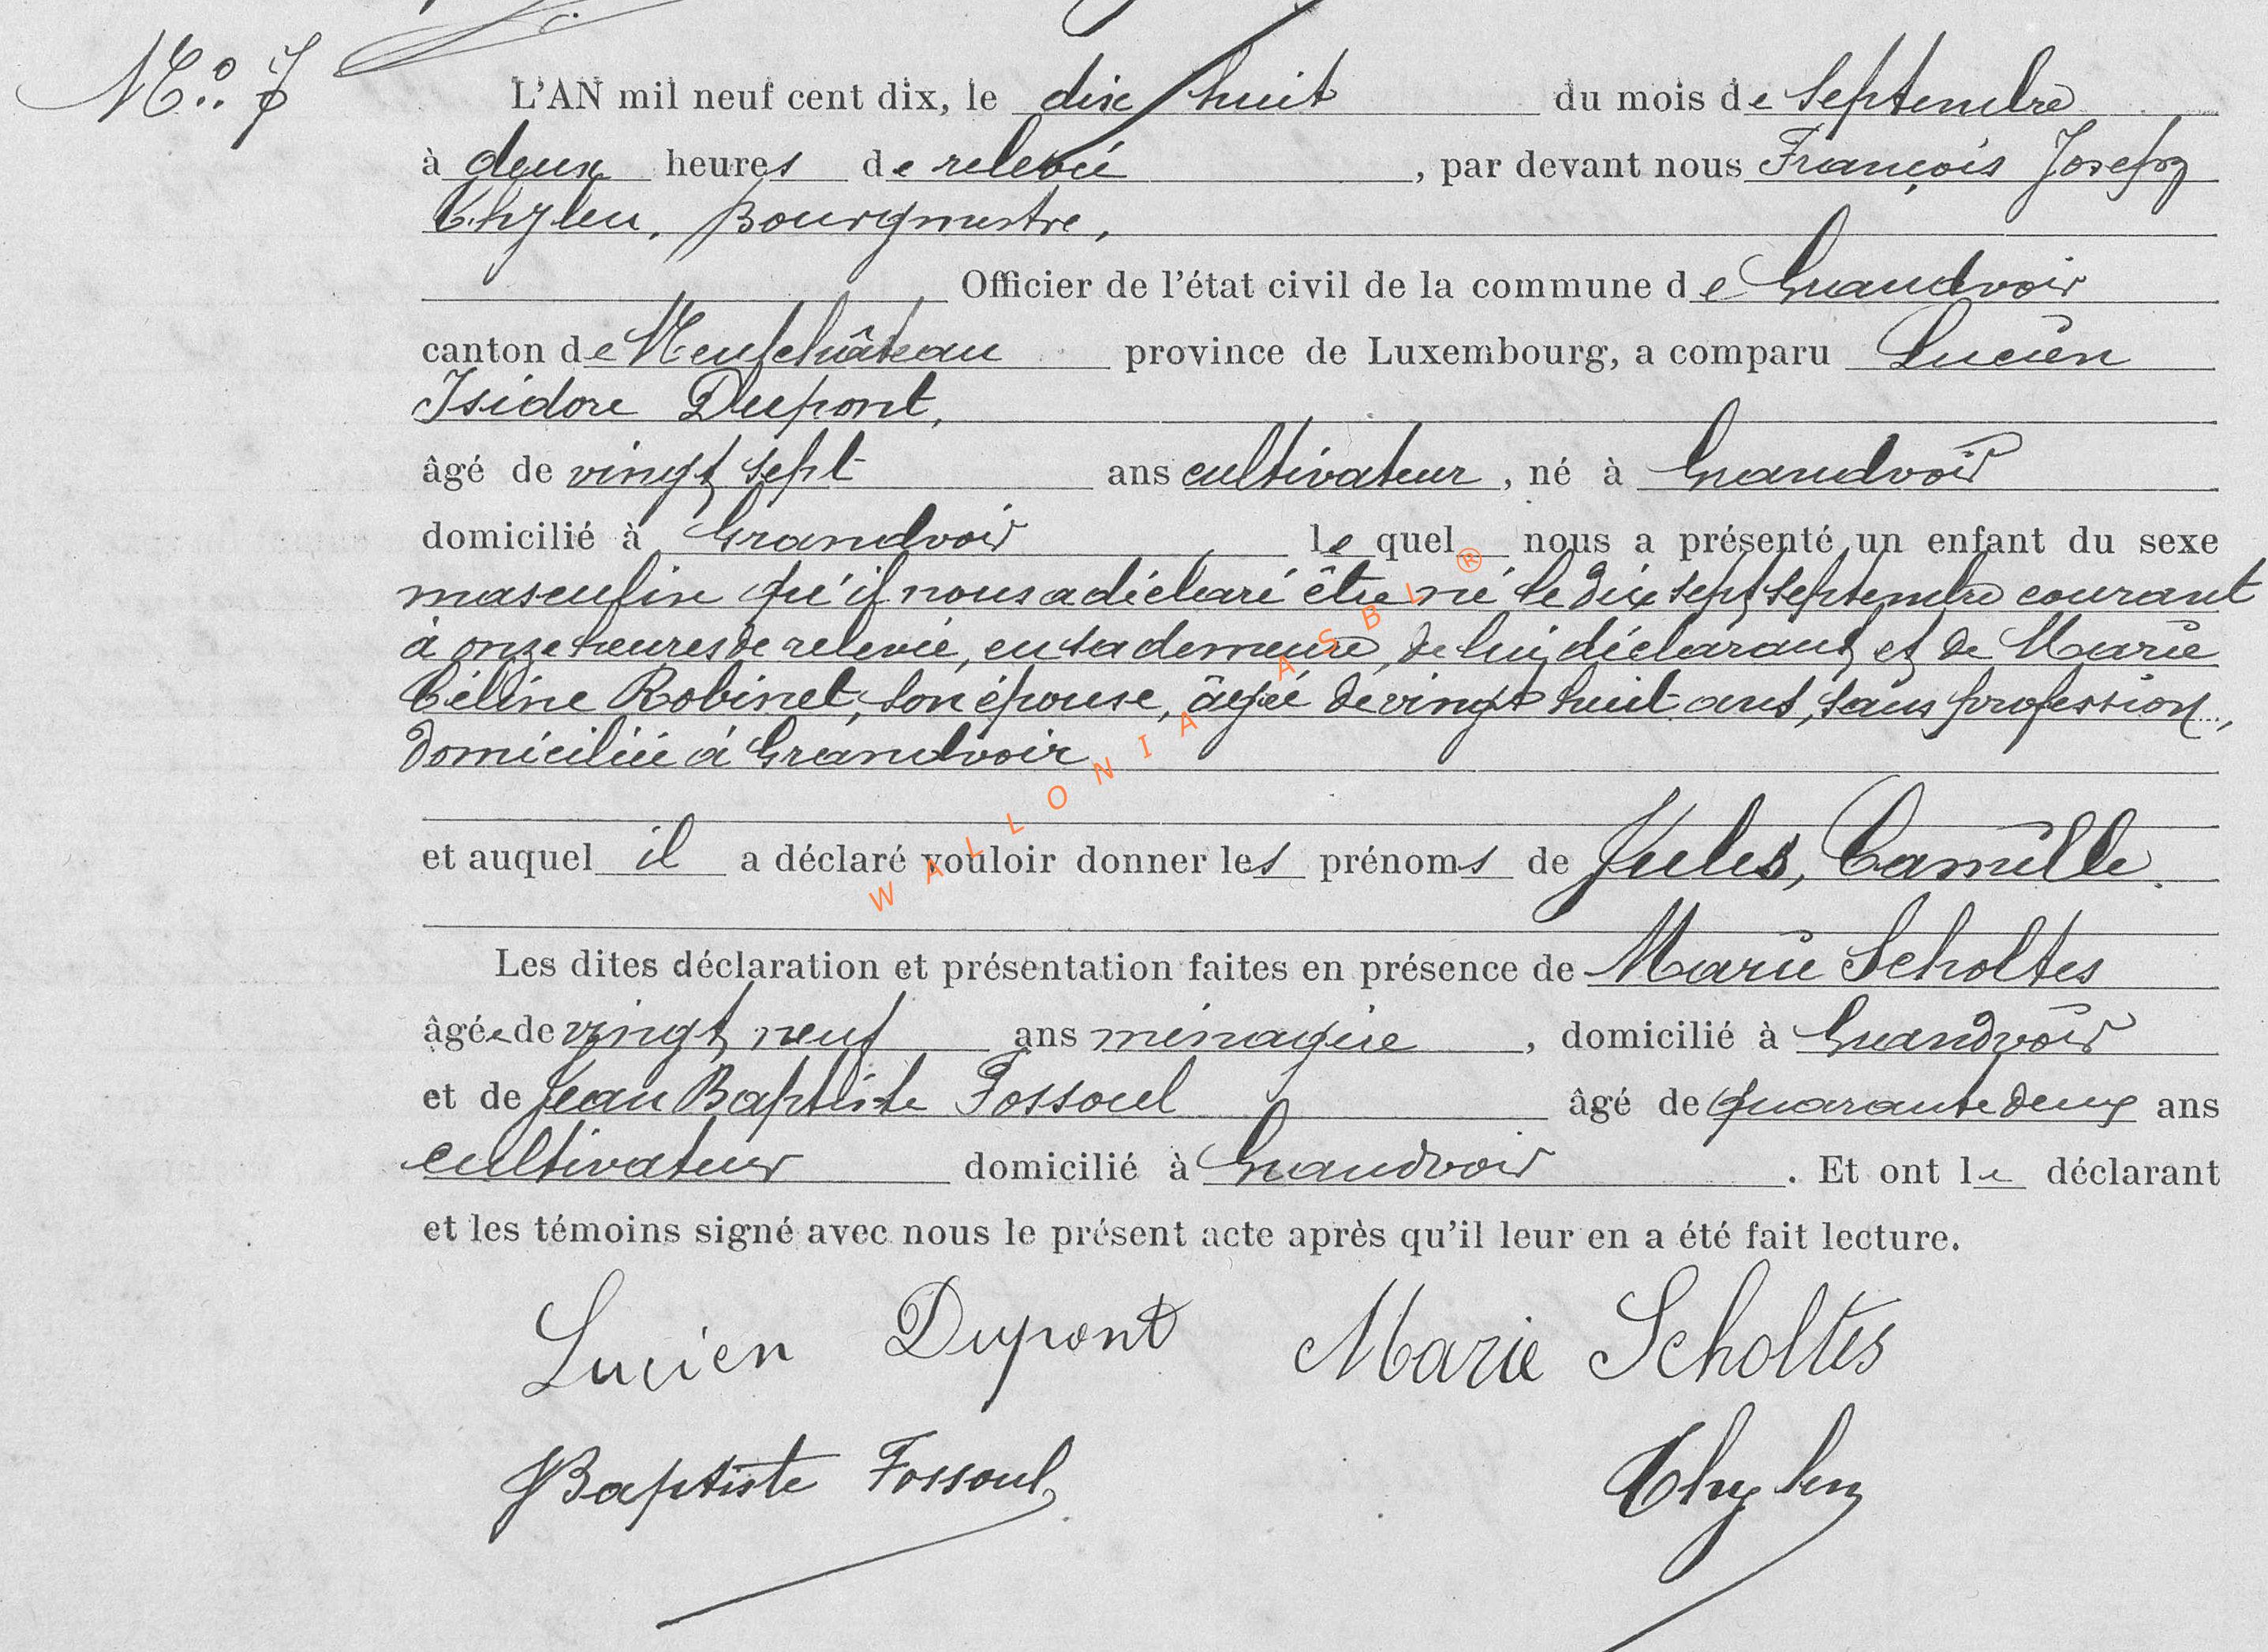 N° 7
L'AN mil neuf cent dix, le dix huit du mois de Septembre
à deux heures de relevée, par devant nous François Joseph
Thylen, Bourgmestre,
Officier de l'état civil de la commune de Grandvoir
canton de Neufchâteau province de Luxembourg, a comparu Lucien
Isidore Dupont,
âgé de vingt sept ans cultivateur, né à Grandvoir
domicilié à Grandvoir lequel nous a présenté un enfant du sexe
masculin qu'il nous a déclaré être né le dix sept Septembre courant
à onze heures de relevée, en sa demeure, de lui déclarant et de Marie
Céline Robinet, son épouse, âgée de vingt huit ans, sans profession,
domiciliée à Grandvoir
et auquel il a déclaré vouloir donner les prénoms de Jules, Camille.
Les dites déclaration et présentation faites en présence de Marie Scholtes
âgée de vingt neuf ans ménagère, domicilié à Grandvoir
et de Jean Baptiste Fossoul âgé de quarante deux ans
cultivateur domicilié à Grandvoir. Et ont le déclarant
et les témoins signé avec nous le présent acte après qu'il leur en a été fait lecture.
Lucien Dupont Marie Scholtes
JBaptiste Fossoul Thylen
WALLONIA ASBL ®